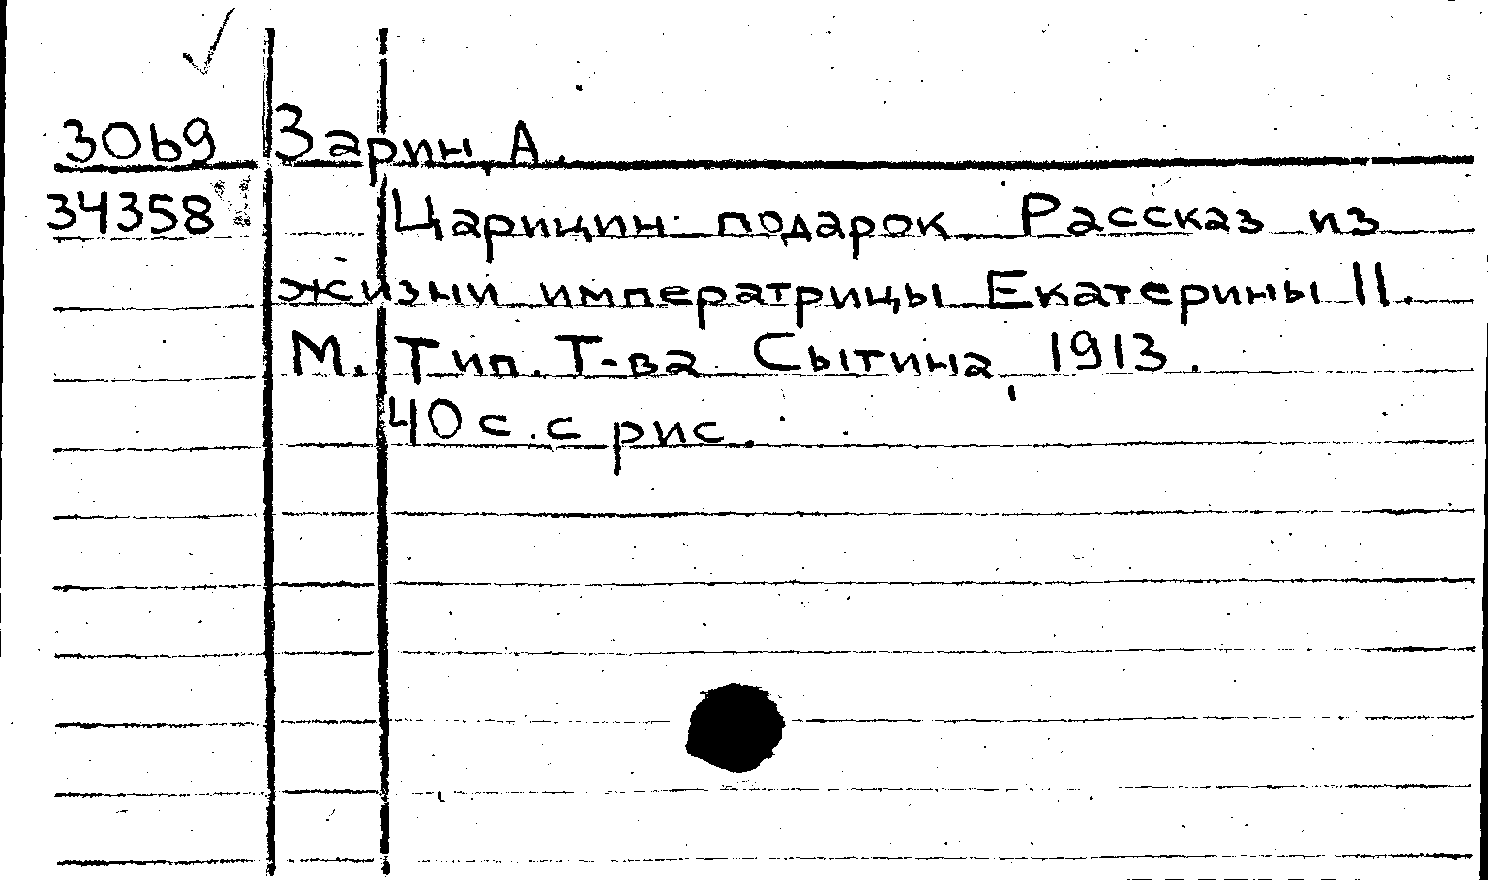 3069 Зарин, А.
34358 Царицин подарок. Рассказ из
жизни императрицы Екатерины II.
М. Тип. Т-ва Сытина, 1913.
40 с. с рис.